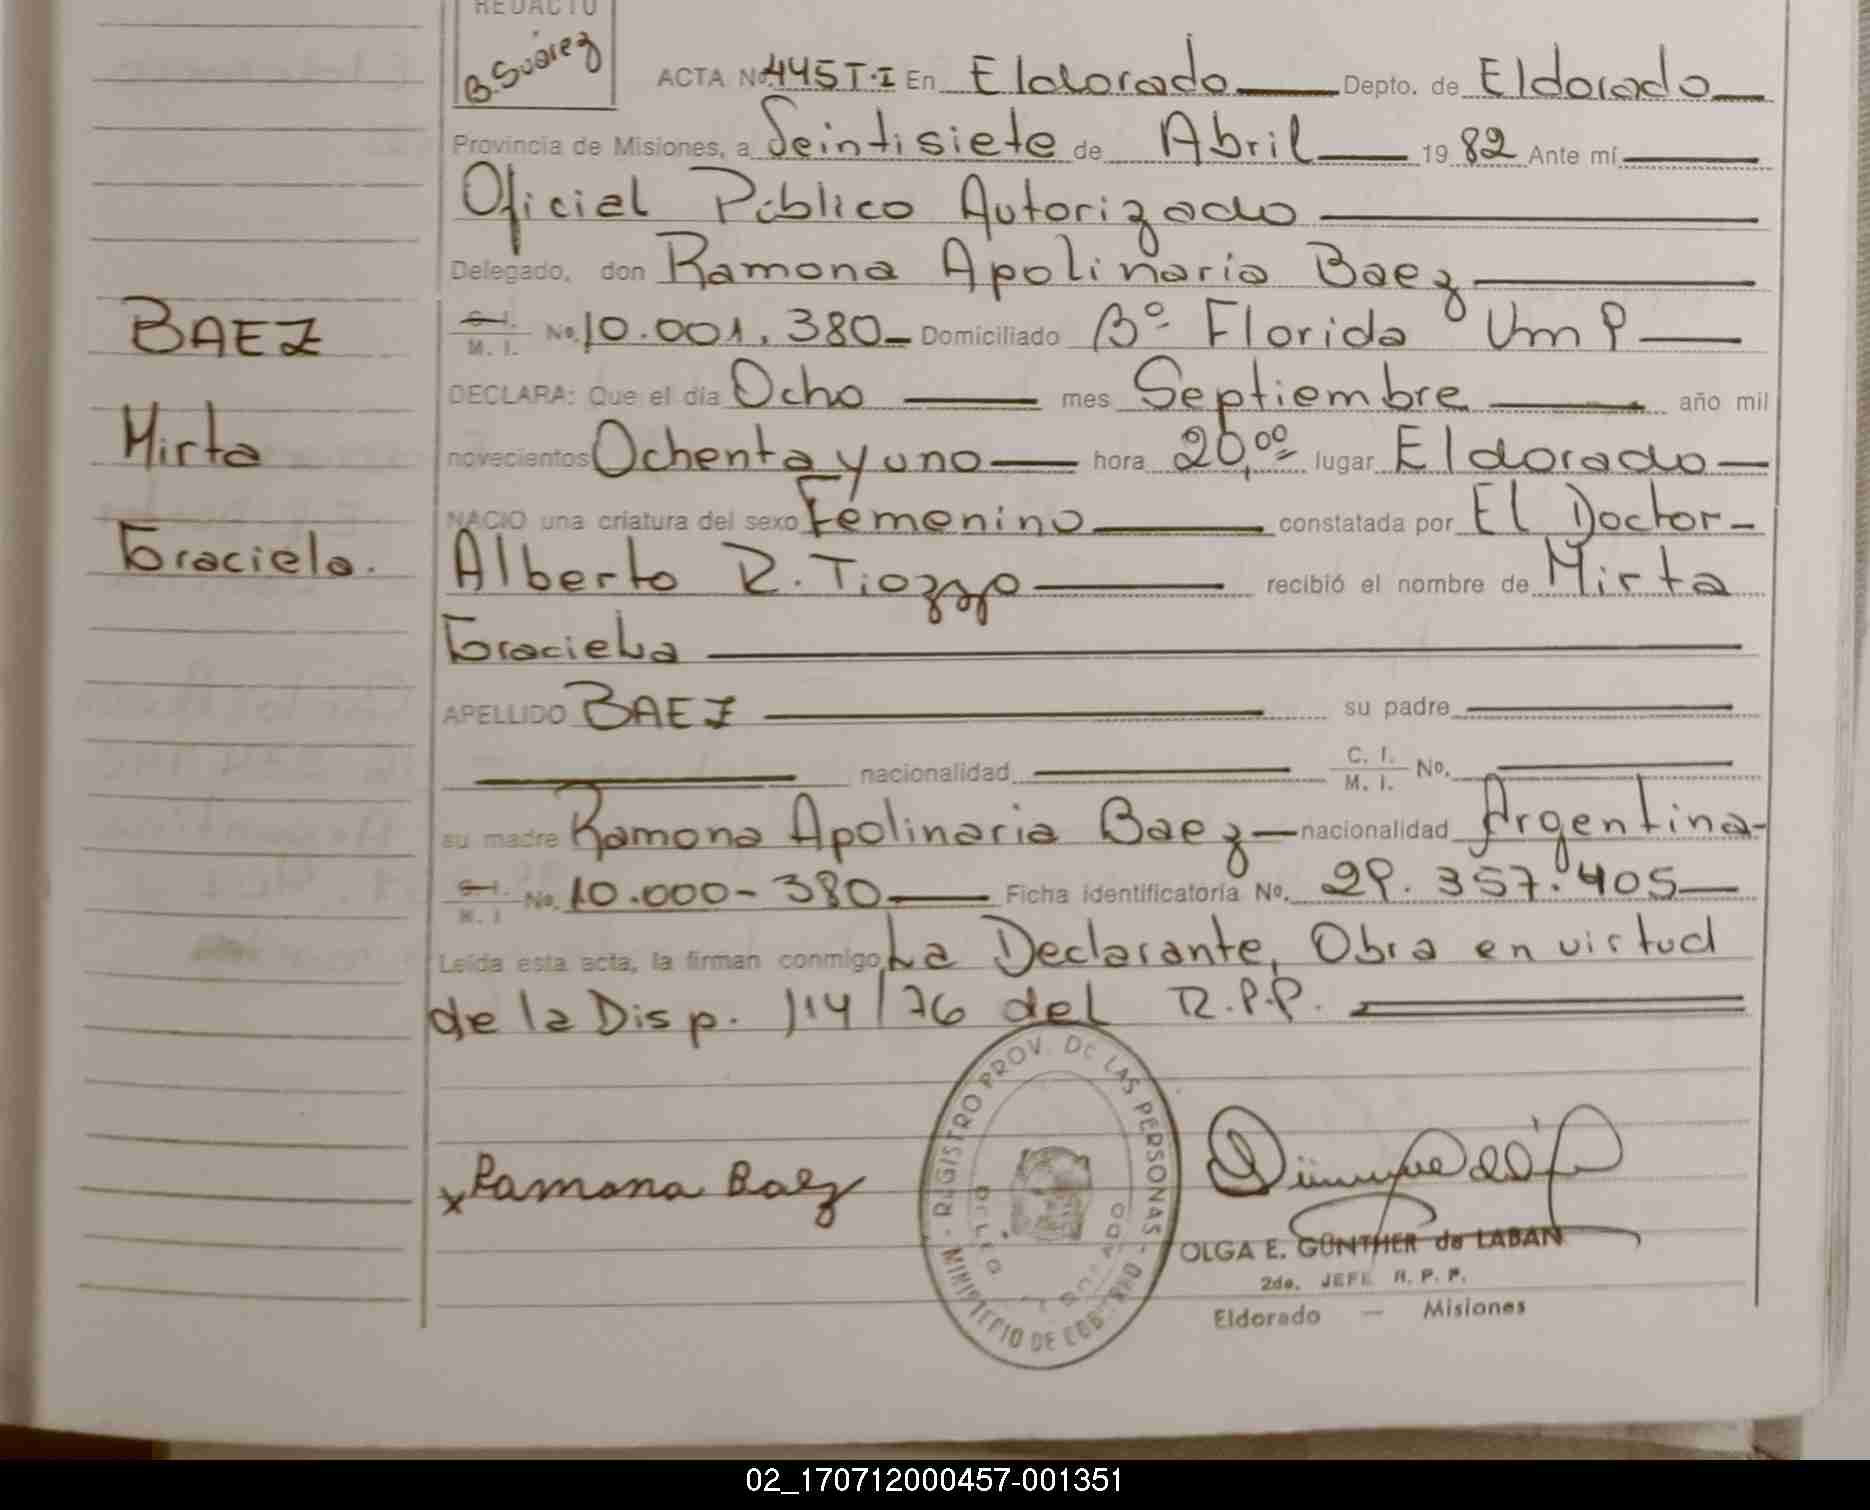 REDACTO
B. Suárez
ACTA No. 445 T·I En Eldorado Depto. de Eldorado
Provincia de Misiones, a Veintisiete de Abril 1982 Ante mí
Oficial Público Autorizado
Delegado, don Ramona Apolinaria Baez
C. I. M. I. No. 10.001.380 Domiciliado B° Florida Um P
DECLARA: Que el día Ocho mes Septiembre año mil
novecientos Ochenta y uno hora 20,00 lugar Eldorado
NACIO una criatura del sexo Femenino constatada por El Doctor
Alberto R. Tiozzo recibió el nombre de Mirta
Graciela
APELLIDO BAEZ su padre
nacionalidad C. I. M. I. No.
su madre Ramona Apolinaria Baez nacionalidad Argentina
C. I. M. I No. 10.000-380 Ficha identificatoria No. 29.357.405
Leída esta acta, la firman conmigo, La Declarante, Obra en virtud
de la Disp. 114/76 del R.P.P.
BAEZ
Mirta
Graciela.
x Ramona Baez
REGISTRO PROV. DE LAS PERSONAS - MINISTERIO DE GOB.
OLGA E. GÜNTHER de LABAN
2do. JEFE R. P. P.
Eldorado — Misiones
02_170712000457-001351